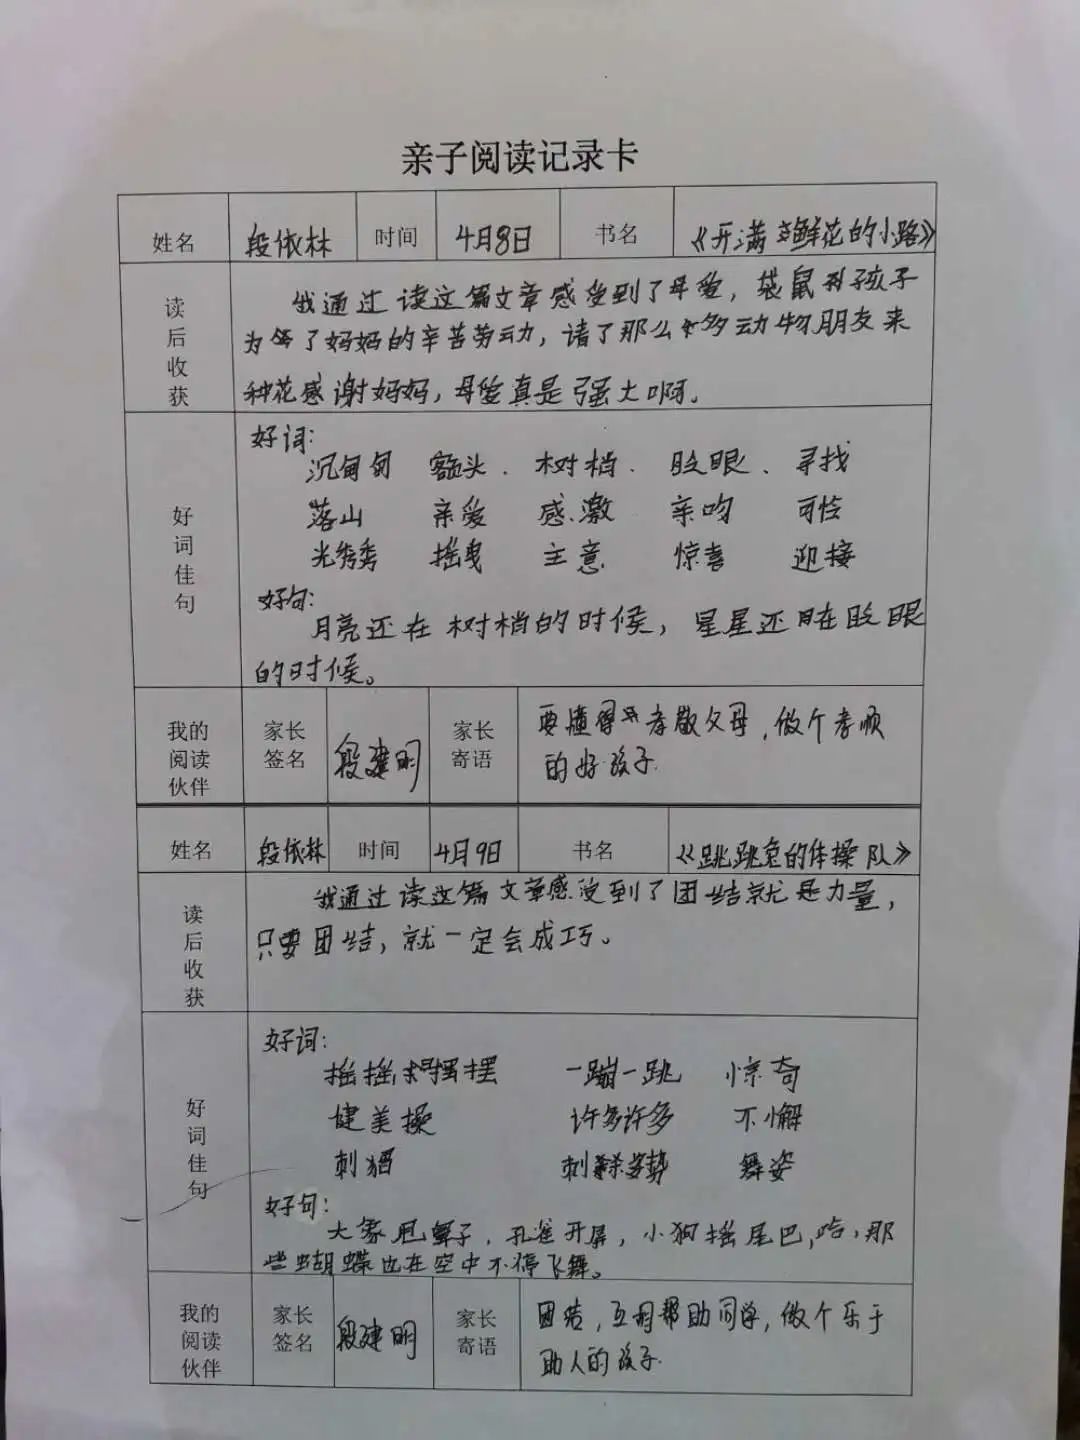 亲子阅读记录卡
姓名 段依林 时间 4月8日 书名 《开满鲜花的小路》
读后收获
我通过读这篇文章感受到了母爱，袋鼠 孩子
为了妈妈的辛苦劳动，请了那么多动物朋友来
种花感谢妈妈，母爱真是强大啊。
好词佳句
好词：
沉甸甸 额头. 树梢. 眨眼、寻找
落山 亲爱 感激 亲吻 可惜
光秃秃 摇曳 主意 惊喜 迎接
好句：
月亮还在树梢的时候，星星还在眨眼
的时候。
我的阅读伙伴 家长签名 段建明 家长寄语
要懂得孝敬父母，做个孝顺
的好孩子.
姓名 段依林 时间 4月9日 书名 《跳跳兔的体操队》
读后收获
我通过读这篇文章感受到了团结就是力量，
只要团结，就一定会成功。
好词佳句
好词：
摇摇摆摆 一蹦一跳 惊奇
健美操 许多许多 不懈
刺猬 姿势 舞姿
好句：
大象甩鼻子，孔雀开屏，小狗摇尾巴，哈，那
些蝴蝶也在空中不停飞舞。
我的阅读伙伴 家长签名 段建明 家长寄语
团结，互相帮助同学，做个乐于
助人的孩子.